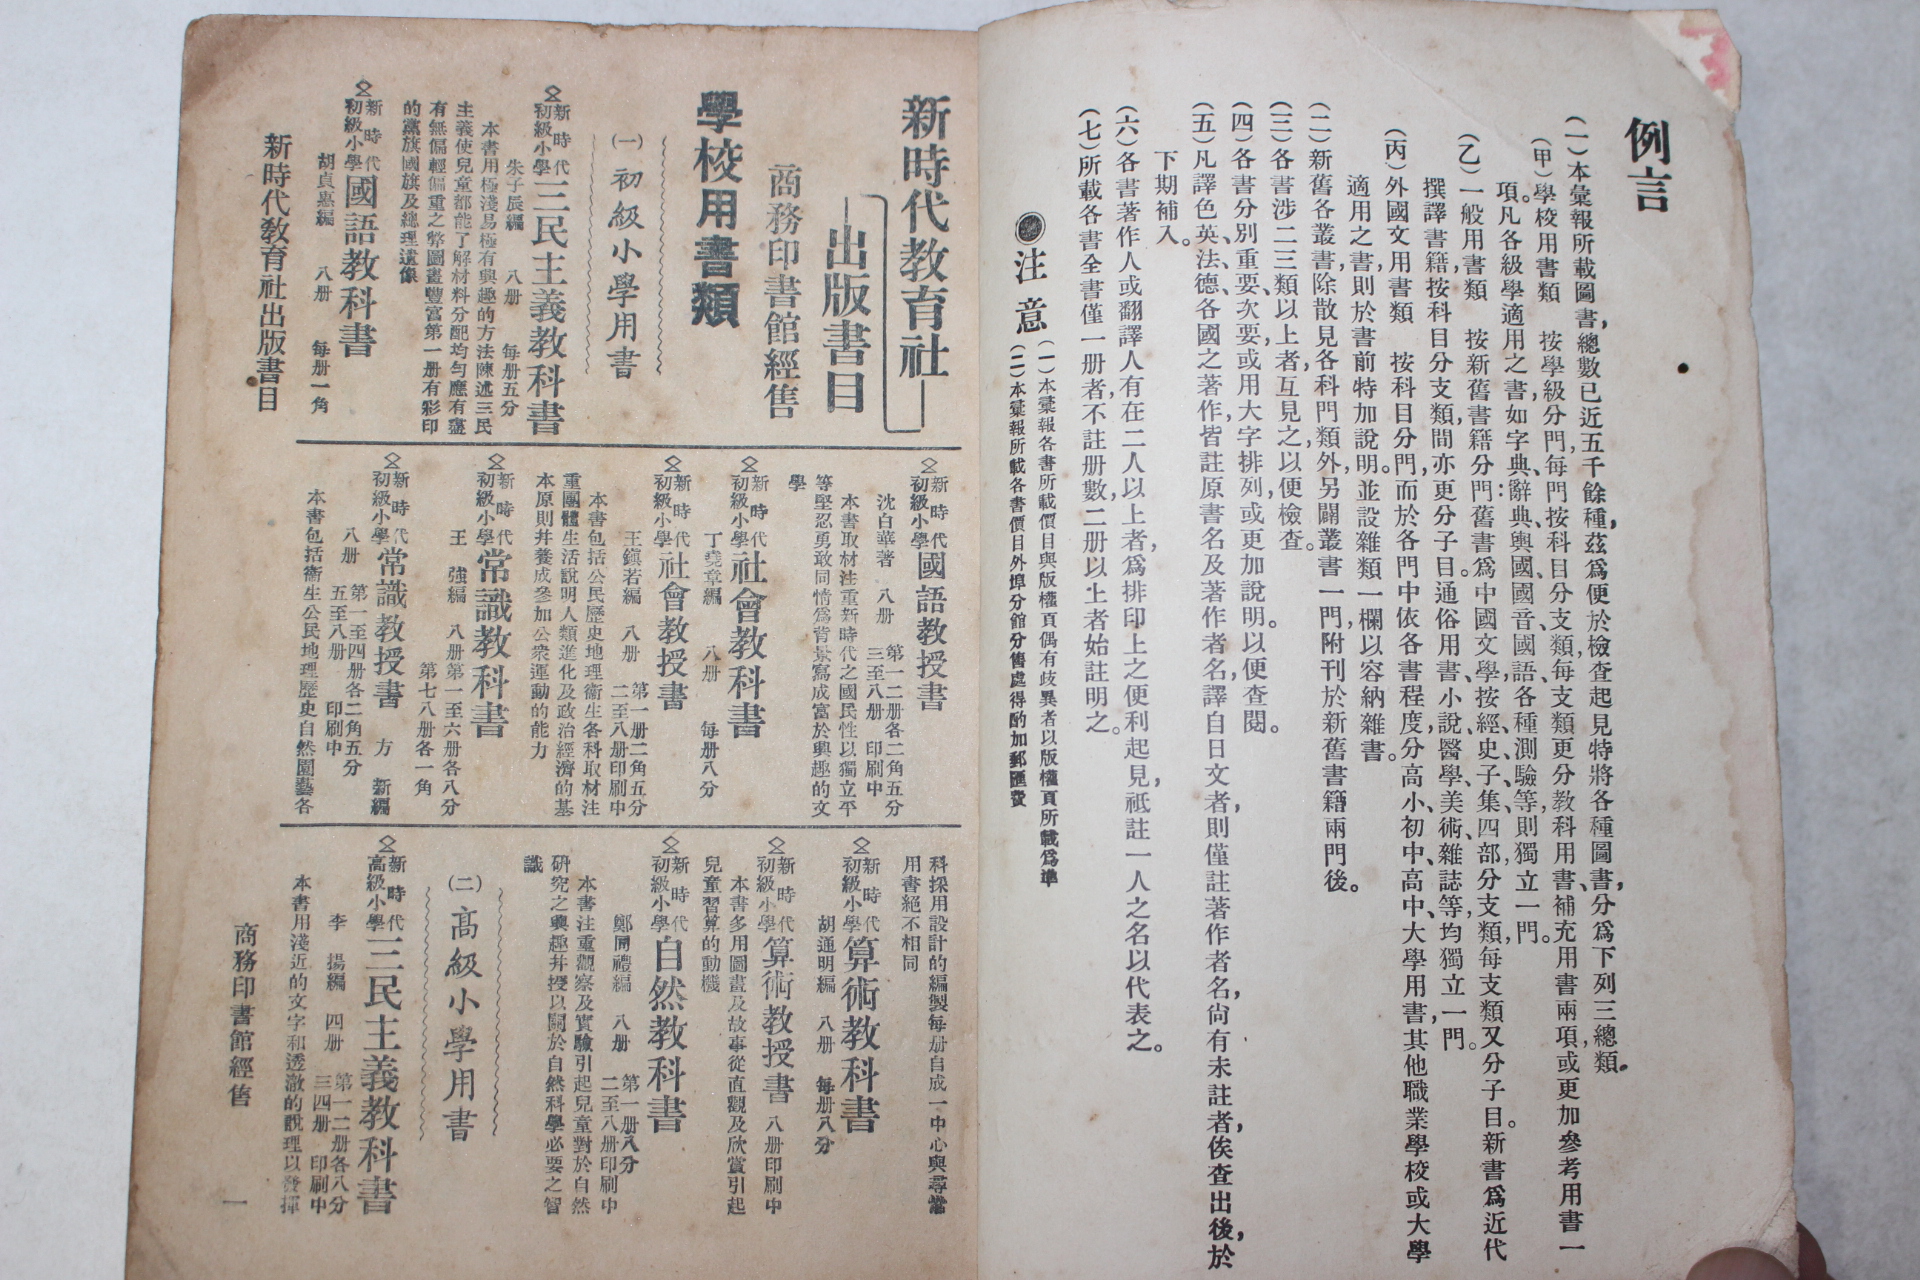 例言
(一)本彙報所載圖書,總數已近五千餘種,茲爲便於檢查起見,特將各種圖書,分爲下列三總類。
(甲)學校用書類　按學級分門,每門按科目分支類,每支類更分教科用書、補充用書兩項,或更加參考用書一
項。凡各級學適用之書,如字典、辭典、與國國音國語各種測驗等,則獨立一門。
(乙)一般用書類　按新舊書籍分門,舊書爲中國文學,按經、史、子、集、四部分支類,每支類又分子目。新書爲近代
撰譯書籍,按科目分支類,間亦更分子目。通俗用書、小說、醫學、美術、雜誌等,均獨立一門。
(丙)外國文用書類　按科目分門,而於各門中依各書程度,分高小、初中、高中、大學用書,其他職業學校或大學
適用之書,則於書前特加說明。並設雜類一欄,以容納雜書。
(二)新舊各叢書,除散見各科門類外,另闢叢書一門,附刊於新舊書籍兩門後。
(三)各書涉二三類以上者,互見之,以便檢查。
(四)各書分別重要、次要,或用大字排列,或更加說明。以便查閱。
(五)凡譯色英、法、德、各國之著作,皆註原書名及著作者名,譯自日文者,則僅註著作者名,尚有未註者,俟查出後,於
下期補入。
(六)各書著作人或翻譯人有在二人以上者,爲排印上之便利起見,祗註一人之名以代表之。
(七)所載各書,全書僅一册者,不註册數,二册以上者始註明之。
●注意
(一)本彙報各書所載價目與版權頁偶有歧異者以版權頁所載爲準
(二)本彙報所載各書價目外埠分館分售處得酌加郵匯費
新時代教育社
出版書目
商務印書館經售
學校用書類
(一)初級小學用書
新時代初級小學三民主義教科書
朱子辰編　八册　每册五分
本書用極淺易極有興趣的方法陳述三民
主義使兒童都能了解材料分配均勻應有盡
有無偏輕偏重之弊圖畫豐富第一册有彩印
的黨旗國旗及總理遺像
新時代初級小學國語教科書
胡貞惠編　八册　每册一角
新時代教育社出版書目
新時代初級小學國語教授書
沈白華著　八册　第一二册各二角五分
三至八册　印刷中
本書取材注重新時代之國民性以獨立平
等堅忍勇敢同情爲背景寫成富於興趣的文
學
新時代初級小學社會教科書
丁堯章編　八册　每册八分
新時代初級小學社會教授書
王鎭若編　八册　第一册二角五分
二至八册印刷中
本書包括公民歷史地理衞生各科取材注
重團體生活說明人類進化及政治經濟的基
本原則幷養成參加公衆運動的能力
新時代初級小學常識教科書
王　強編　八册第一至六册各八分
第七八册各一角
新時代初級小學常識教授書　方　新編
八册　第一至四册各二角五分
五至八册　印刷中
本書包括衞生公民地理歷史自然園藝各
科採用設計的編製每册自成一中心與尋常
用書絕不相同
新時代初級小學算術教科書
胡通明編　八册　每册八分
新時代初級小學算術教授書　八册印刷中
本書多用圖畫及故事從直觀及欣賞引起
兒童習算的動機
新時代初級小學自然教科書
鄭同禮編　八册　第一册八分
二至八册印刷中
本書注重觀察及實驗引起兒童對於自然
研究之興趣幷授以關於自然科學必要之智
識
(二)高級小學用書
新時代高級小學三民主義教科書
李　揚編　四册　第一二册各八分
三四册　印刷中
本書用淺近的文字和透澈的說理以發揮
商務印書館經售
一